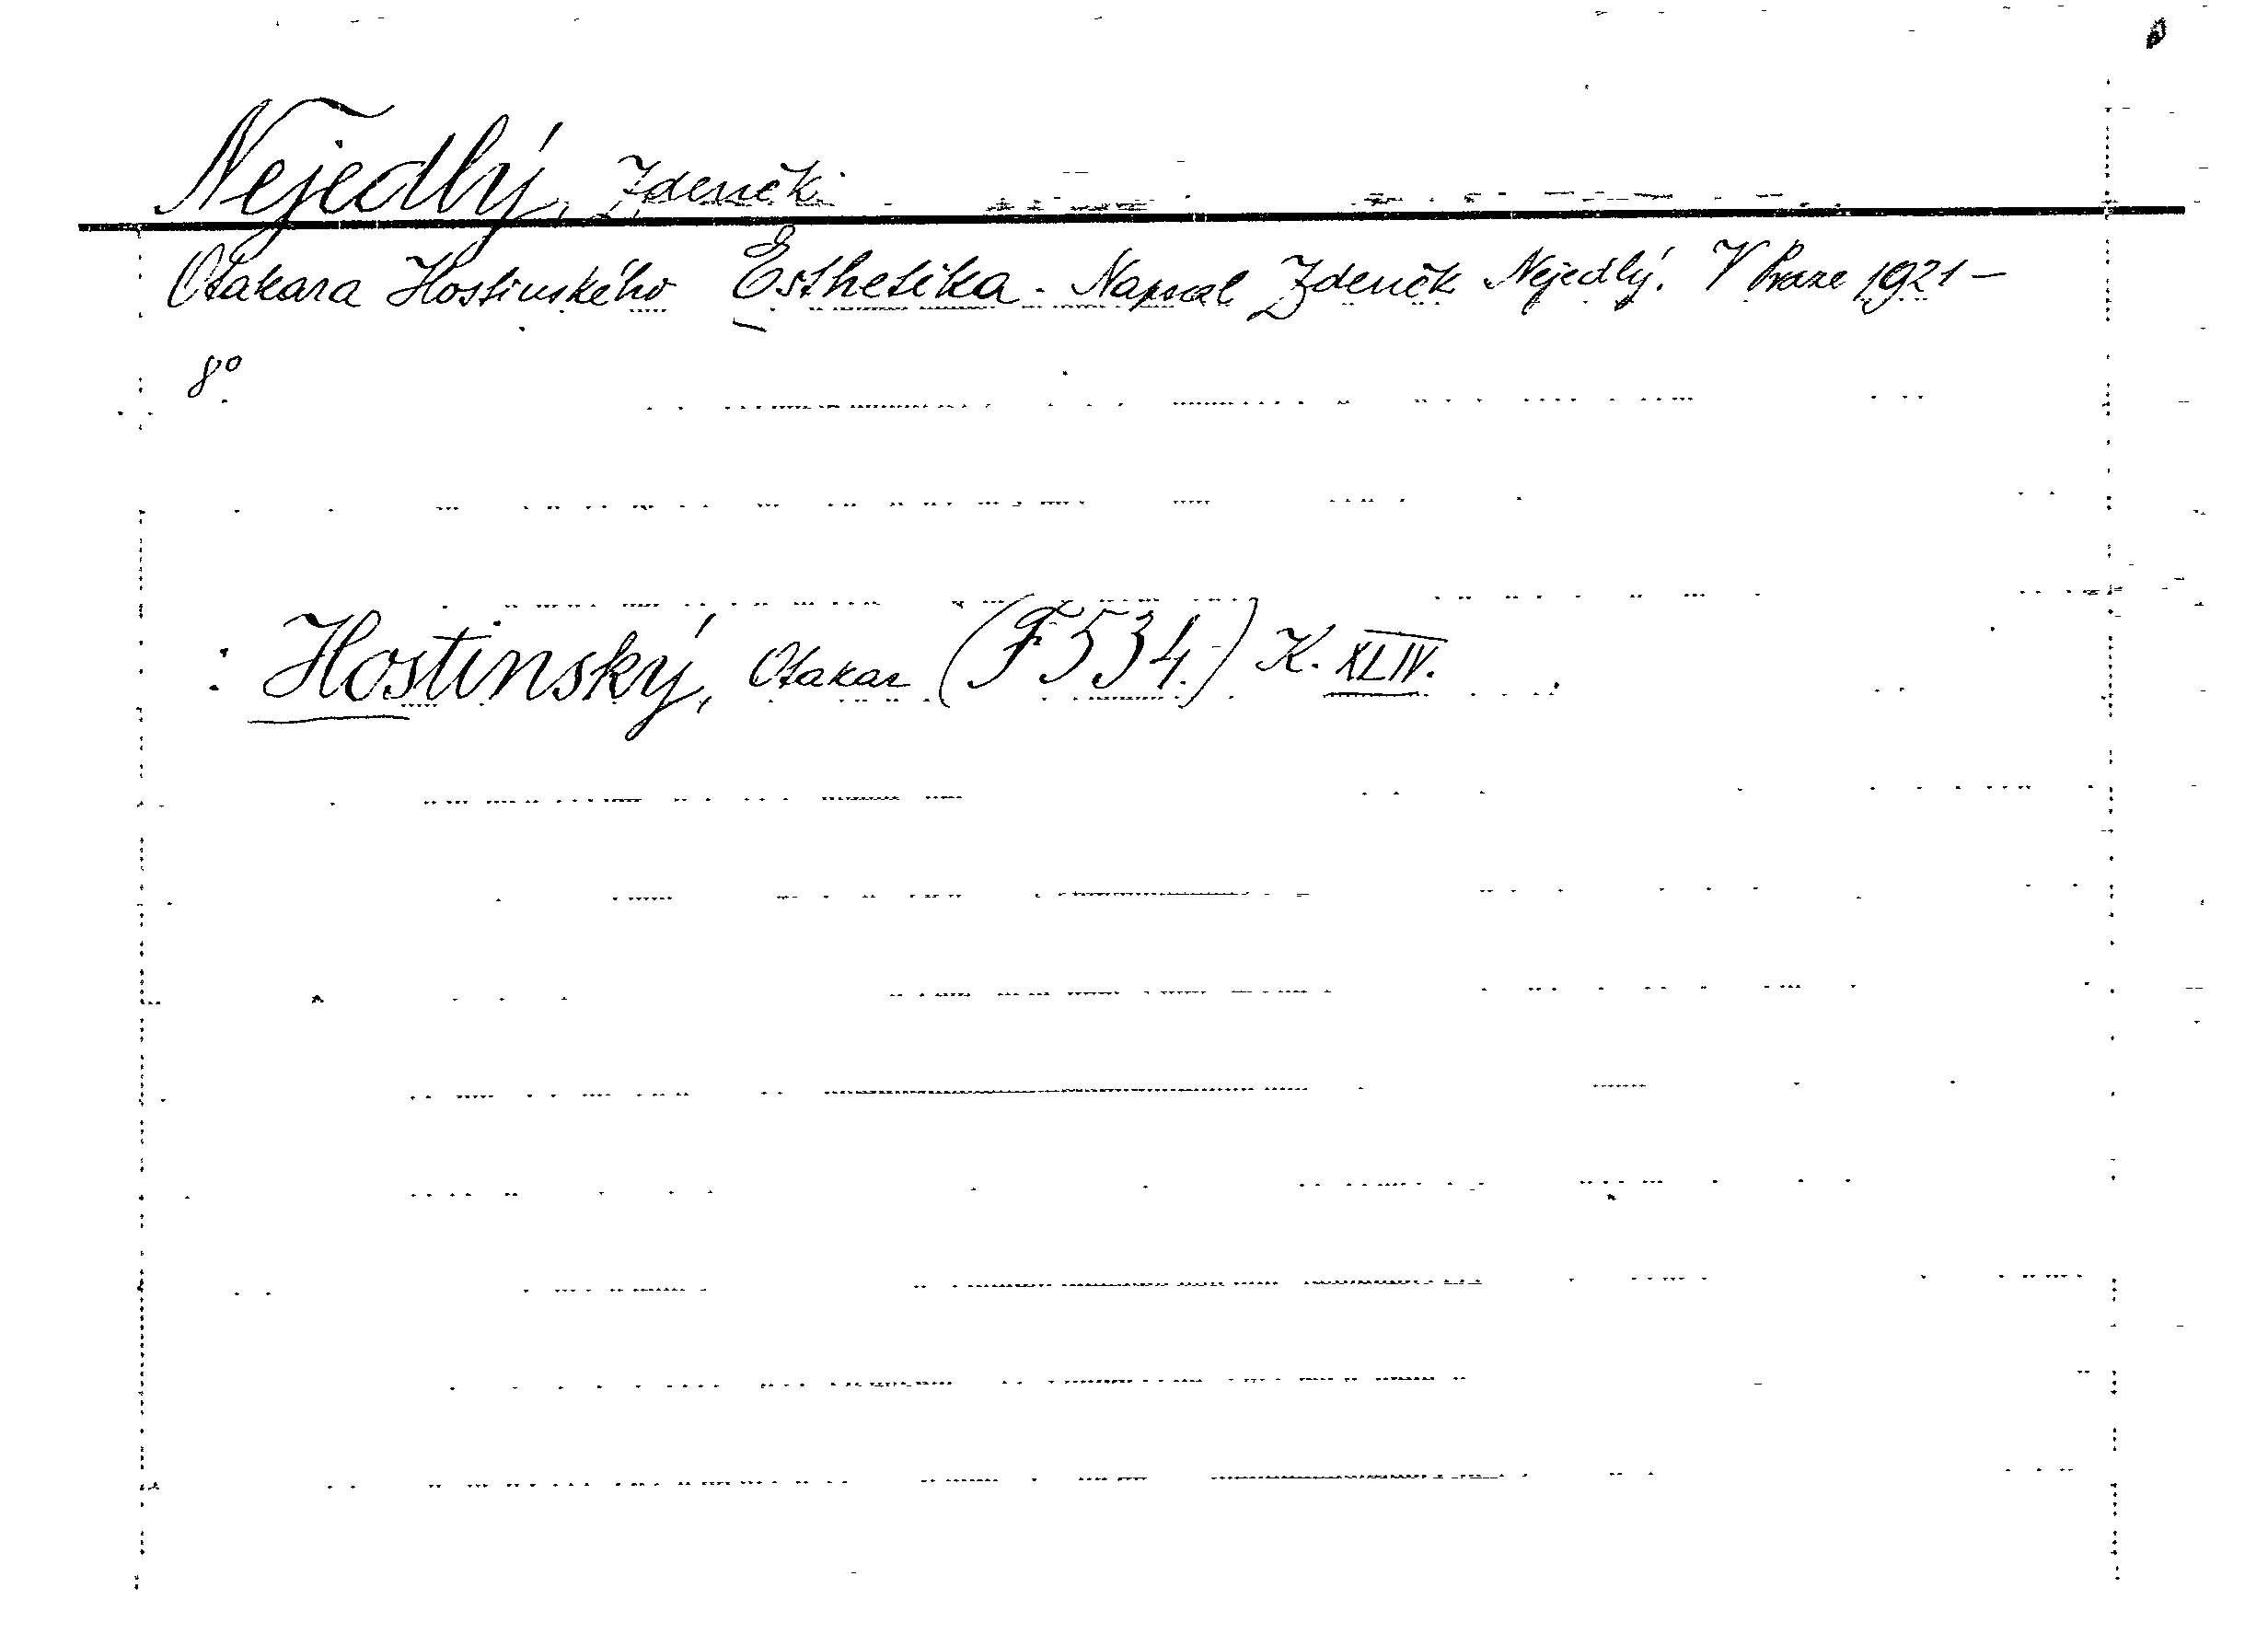 Nejedlý, Zdeněk.
Otakara Hostinského Esthetika. Napsal Zdeněk Nejedlý. V Praze 1921 –
8°
: Hostinský, Otakar (F 534.) K. XLIV.